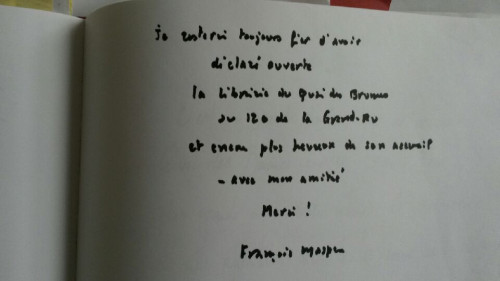 je resterai toujours fier d'avoir
déclaré ouverte
la Librairie du Quai des Brumes
au 120 de la Grand-Rue
et encore plus heureux de son accueil
- avec mon amitié
Merci !
François Maspero